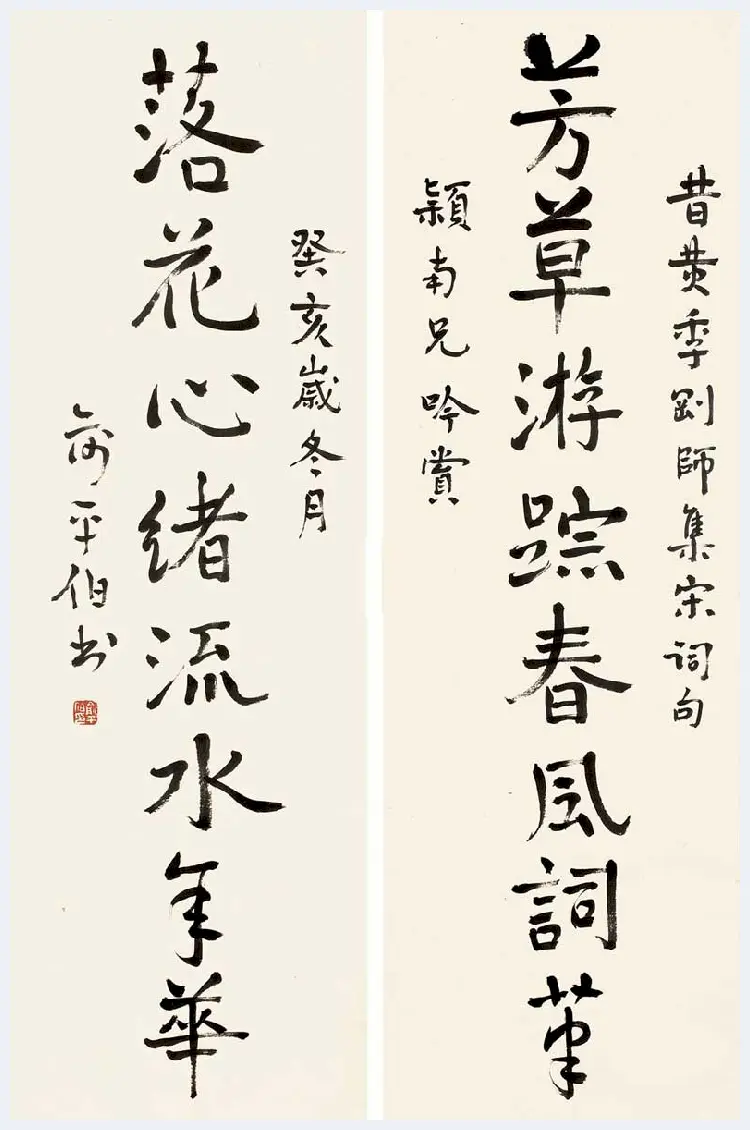 昔黄季刚師集宋词句
芳草游踪春風詞筆
潁南兄吟賞
癸亥歲冬月
落花心緒流水年華
俞平伯书